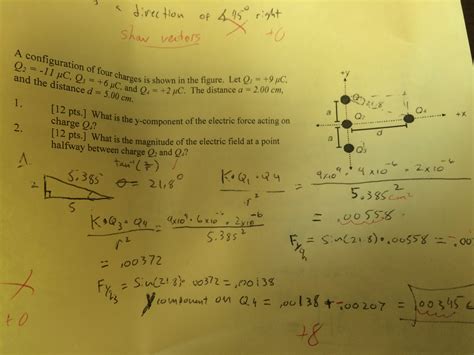 direction of 45° right
show vectors +0
A configuration of four charges is shown in the figure. Let Q₁ = +9 μC,
Q₂ = -11 μC, Q₃ = +6 μC, and Q₄ = +2 μC. The distance a = 2.00 cm,
and the distance d = 5.00 cm.
1. [12 pts.] What is the y-component of the electric force acting on
charge Q₄?
2. [12 pts.] What is the magnitude of the electric field at a point
halfway between charge Q₂ and Q₄?
+y
a
21.8
Q₂
Q₄
+x
a
d
Q₃
1.
tan⁻¹(2/5)
5.385
θ = 21.8°
2
5
K•Q₁•Q₄ / r²
5.385cm²
= .00558
K•Q₃•Q₄ / r² = 9x10⁹•6x10⁻⁶•2x10⁻⁶ / 5.385²
= .00372
= Sin(21.8)•.00558 = -.00
= Sin(21.8)•.00372 = .00138
Y component on Q4 = .00138 + -.00207 =
+0
+8